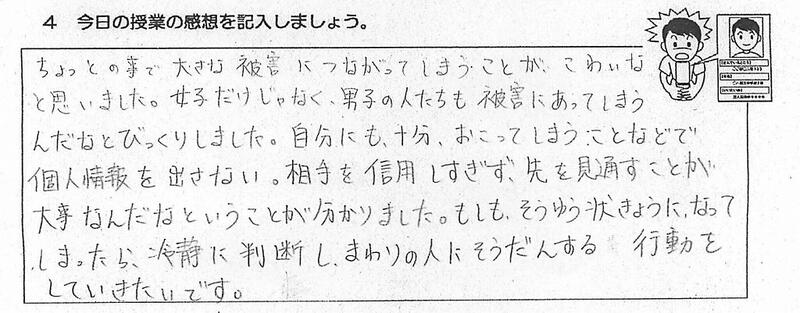 4 今日の授業の感想を記入しましょう。
ちょっとの事で大きな被害につながってしまうことが、こわいな
と思いました。女子だけじゃなく、男子の人たちも被害にあってしまう
んだなとびっくりしました。自分にも、十分、おこってしまうことなどで
個人情報を出さない。相手を信用しすぎず、先を見通すことが
大事なんだなということが分かりました。もしも、そうゆう状きょうに、なって
しまったら、冷静に判断し、まわりの人にそうだんする 行動を
していきたいです。